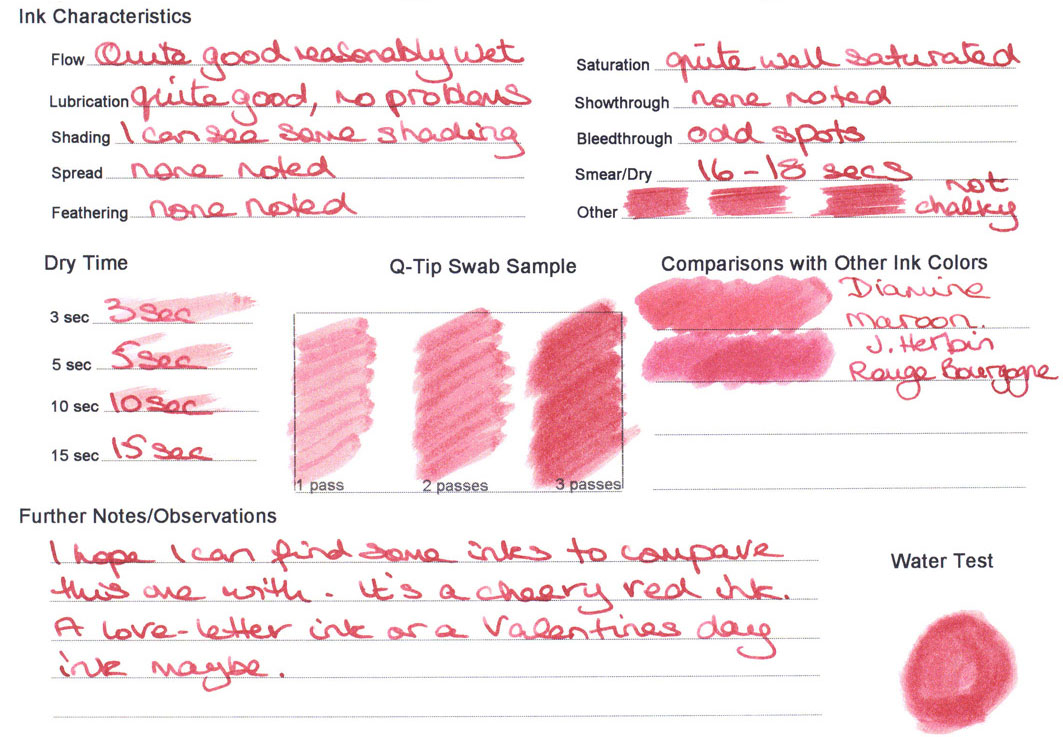 Ink Characteristics
Flow Quite good reasonably wet
Saturation quite well saturated
Lubrication quite good, no problems
Showthrough none noted
Shading I can see some shading
Bleedthrough odd spots
Spread none noted
Smear/Dry 16-18 secs
Feathering none noted
Other not
chalky
Dry Time
3 sec 3 sec
5 sec 5 sec
10 sec 10 sec
15 sec 15 sec
Q-Tip Swab Sample
1 pass 2 passes 3 passes
Comparisons with Other Ink Colors
Diamine
Maroon.
J. Herbin
Rouge Bourgogne
Further Notes/Observations
I hope I can find some inks to compare
this one with. It's a cheery red ink.
A love-letter ink or a Valentines day
ink maybe.
Water Test